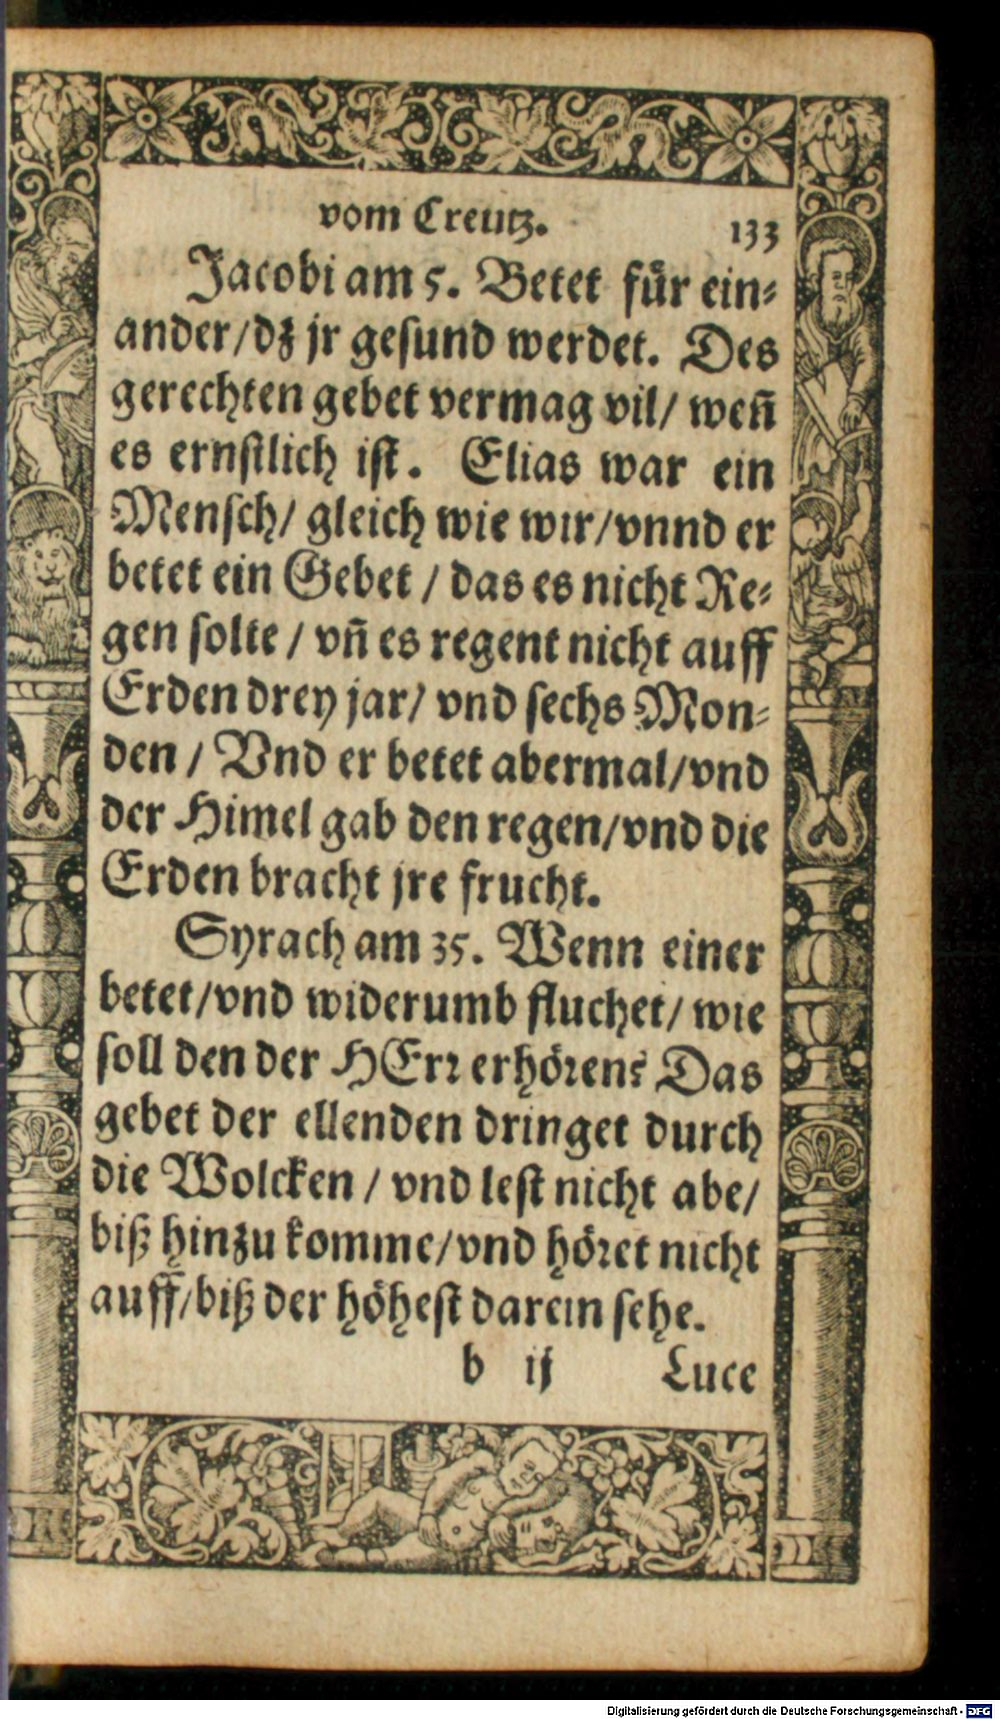 vom Creutz. 133
Jacobi am 5. Betet für ein⸗
ander/dz jr gesund werdet. Des
gerechten gebet vermag vil/ weñ
es ernstlich ist. Elias war ein
Mensch/ gleich wie wir/vnnd er
betet ein Gebet / das es nicht Re⸗
gen solte / vñ es regent nicht auff
Erden drey jar/ vnd sechs Mon⸗
den / Vnd er betet abermal/vnd
der Himel gab den regen/vnd die
Erden bracht jre frucht.
Syrach am 35. Wenn einer
betet/vnd widerumb fluchet/ wie
soll den der HErr erhören? Das
gebet der ellenden dringet durch
die Wolcken / vnd lest nicht abe/
biß hinzu komme/vnd höret nicht
auff/biß der höhest darein sehe.
b ij Luce
Digitalisierung gefördert durch die Deutsche Forschungsgemeinschaft - DFG